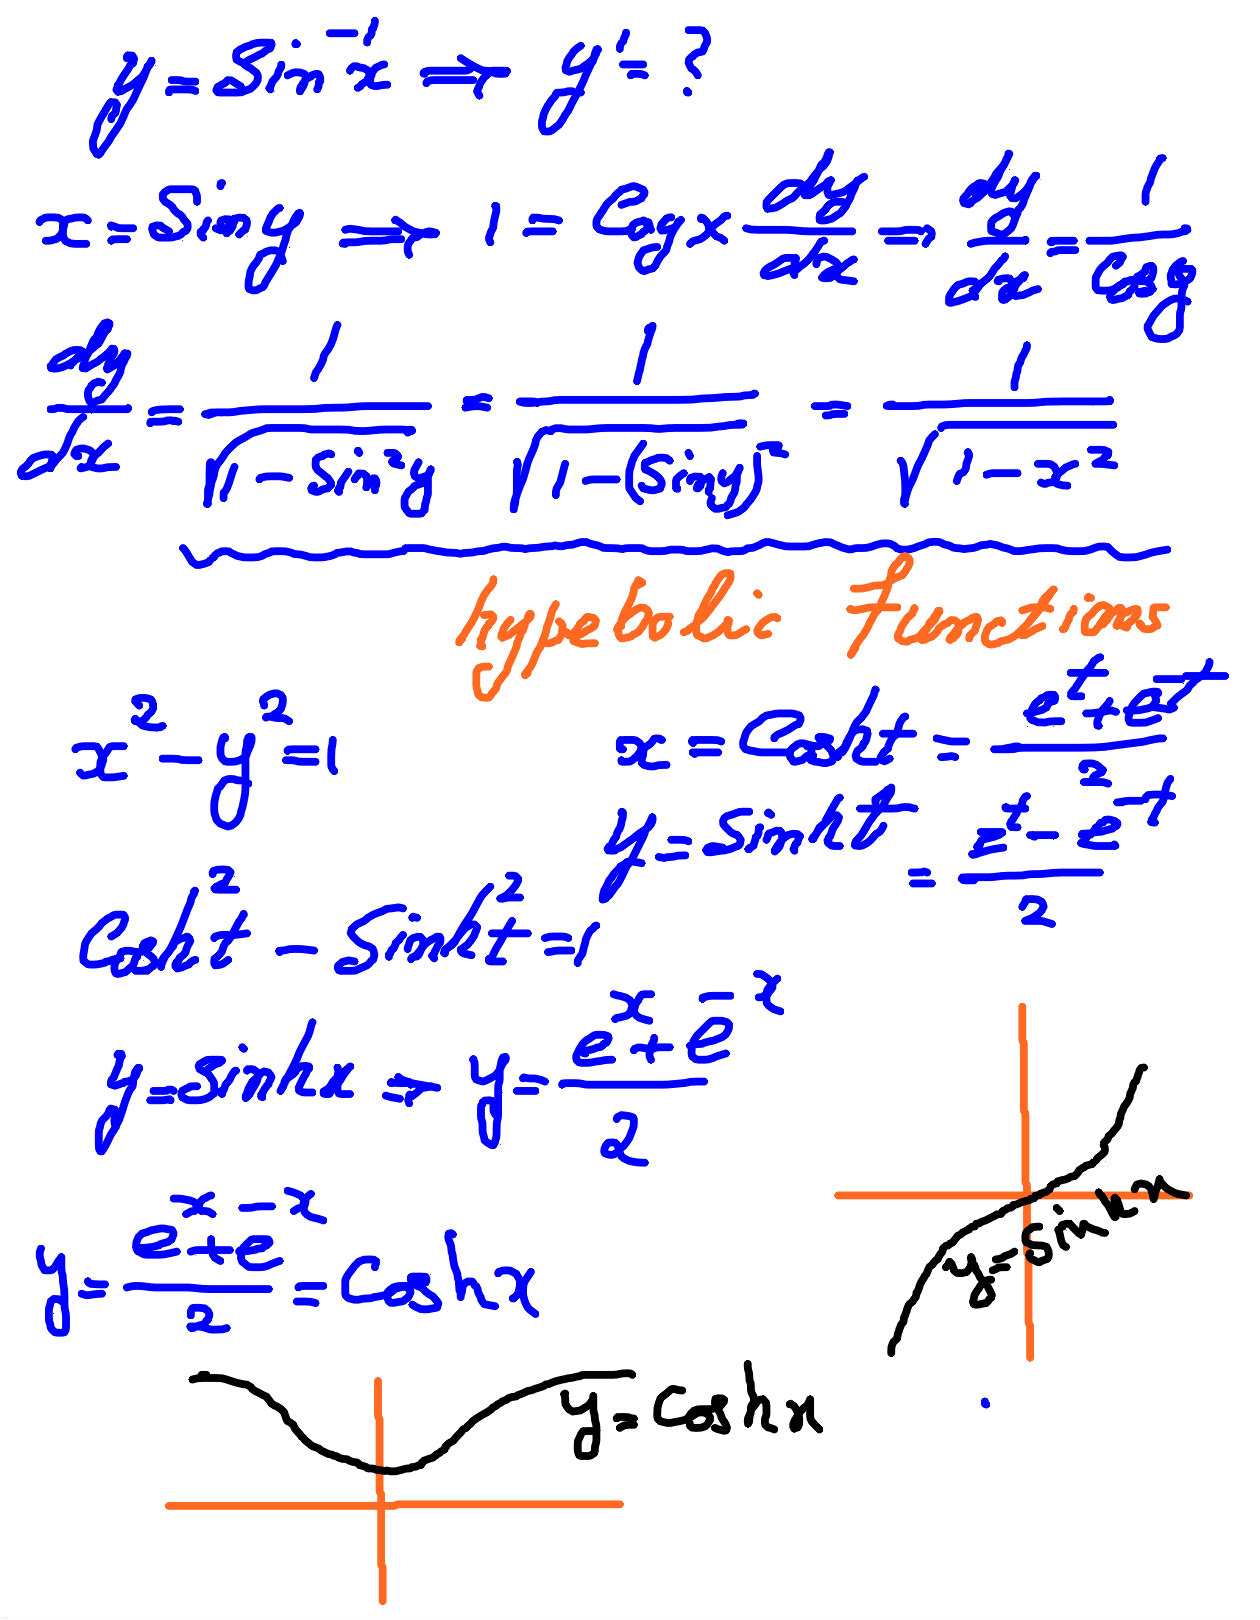 y = Sin⁻¹x ⇒ y' = ?
x = Siny ⇒ 1 = Cosy × dy/dx ⇒ dy/dx = 1/Cosy
dy/dx = 1/√(1 - Sin²y) = 1/√(1 - (Siny)²) = 1/√(1 - x²)
hypebolic Functions
x² - y² = 1
x = Cosht = (e^t + e^-t)/2
y = Sinht = (e^t - e^-t)/2
Cosht² - Sinht² = 1
y = Sinhx ⇒ y = (e^x + e^-x)/2
y = (e^x + e^-x)/2 = Coshx
y = Sinhx
y = Coshx